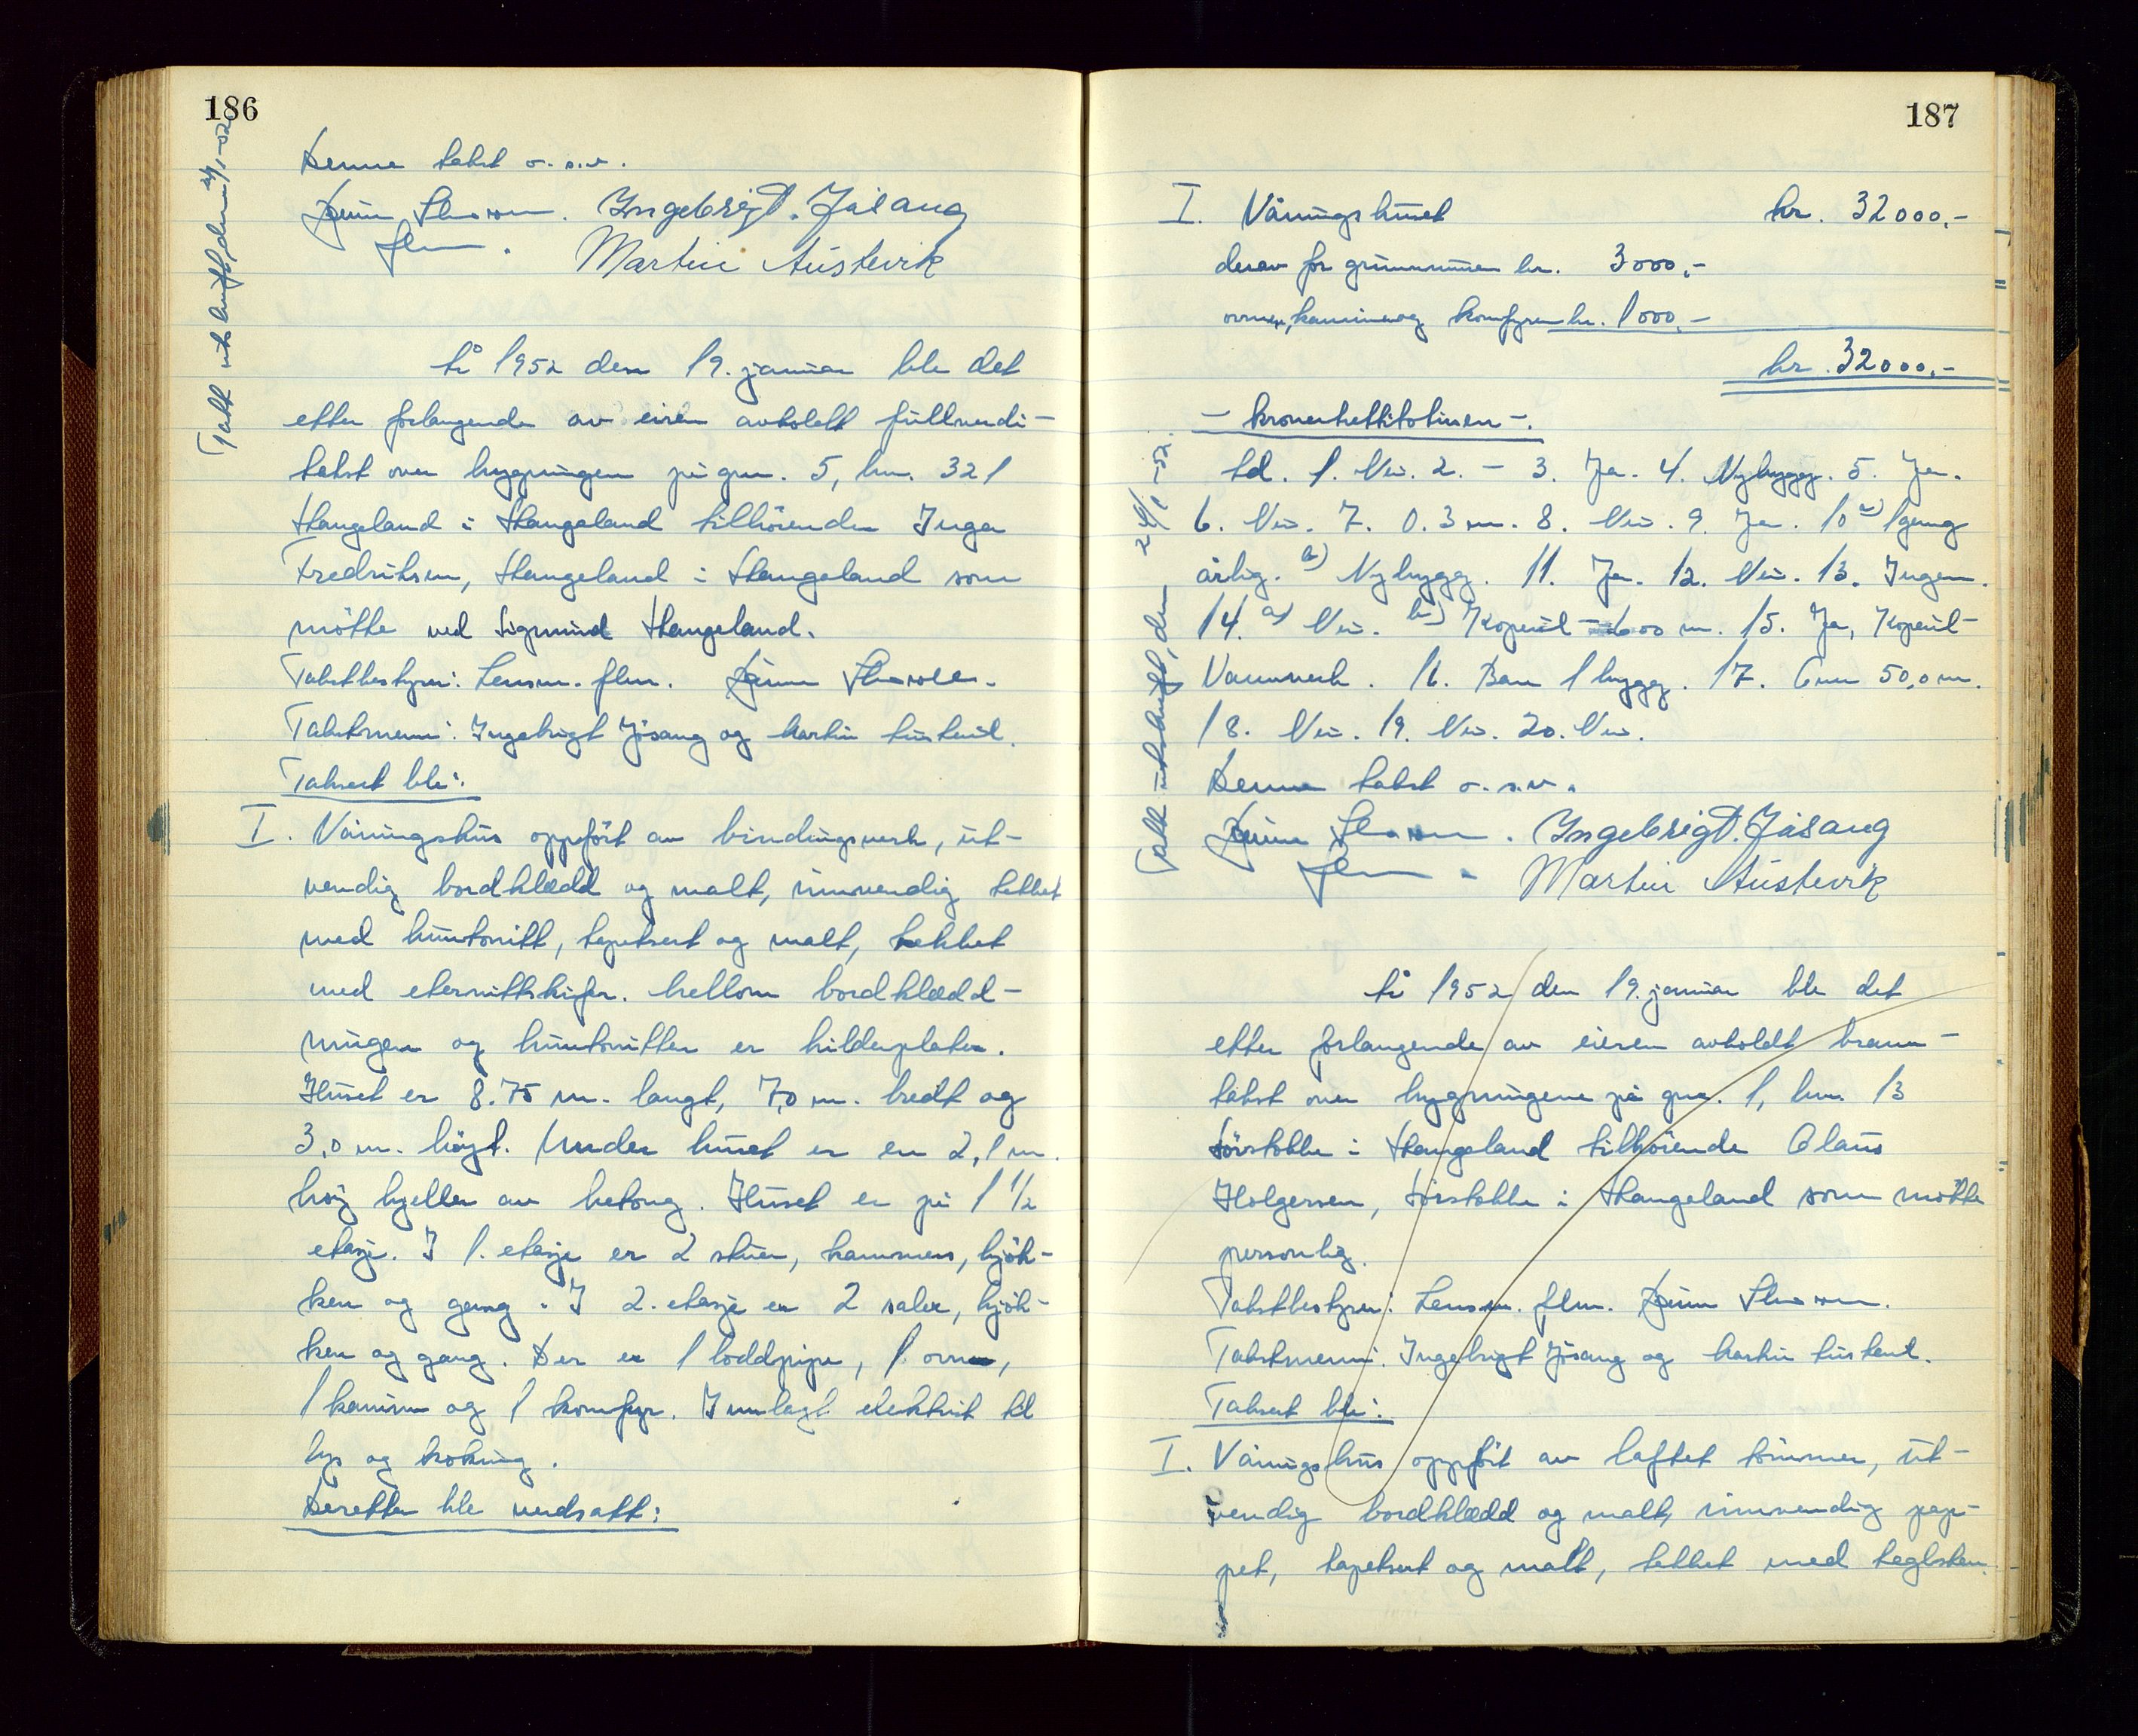 186
Denne takst o.s.v.
Ingebrigt. Jåsang
flm. Martin Austevik
År 1952 den 19. januar ble det
etter forlangende av eiren avholdt fullverdi-
takst over bygningen på gnr. 5, bnr. 321
Stangeland i Stangaland tilhörende Inga
Fredriksen, Stangeland i Stangaland som
mötte ved Sigmund Stangeland.
Takstbestyrer: Lensm. flm.
Takstmenn: Ingebrigt Jåsang og Martin Austevik.
Taksert ble:
I. Våningshus oppfört av bindingsverk, ut-
vendig bordklædd og malt, innvendig tekket
med huntonitt, tapetsert og malt, tekket
med eternittskifer. Mellom bordklædd-
ningen og huntonitten er kilderplater.
Huset er 8.75 m. langt, 7,0 m. bredt og
3,0 m. høgt. Under huset er en 2,1 m.
høg kjeller av betong. Huset er på 1 1/2
etasje. I 1. etasje er 2 stuer, kammers, kjök-
ken og gang. I 2. etasje er 2 saler, kjök-
ken og gang. Der er 1 loddpipe, 1 ovn,
1 kamin og 1 komfyr. Innlagt elektrisk til
lys og koking.
Deretter ble verdsatt:
Takst utskrift, den 24/1-52.
187
I. Våningshuset kr. 32000.-
derav for grunnmuren kr. 3000.-
ovnen, kaminen og komfyren kr. 1000.-
kr. 32000.-
- kronertrettitotusen -.
Ad. 1. Nei. 2. - 3. Ja. 4. Nybygg. 5. Ja.
6. Nei. 7. 0.3 m. 8. Nei. 9. Ja. 10 a) 1 gang
årlig. b) Nybygg. 11. Ja. 12. Nei. 13. Ingen.
14. a) Nei. b) Kopervik - 600 m. 15. Ja, Kopervik
Vannverk. 16. Bare 1 bygg. 17. Over 50,0 m.
18. Nei. 19. Nei. 20. Nei.
Denne takst o.s.v.
Ingebrigt. Jåsang
flm. Martin Austevik
Takst utskrift, den 24/1-52.
År 1952 den 19. januar ble det
etter forlangende av eieren avholdt brann-
takst over bygningene på gnr. 1, bnr. 13
Sörstokke i Stangaland tilhörende Olaus
Holgersen, Sörstokke i Stangaland som mötte
personlig.
Takstbestyrer: Lensm. flm.
Takstmenn: Ingebrigt Jåsang og Martin Austevik.
Taksert ble:
I. Våningshus oppfört av laftet tömmer, ut-
vendig bordklædd og malt, innvendig pap-
pet, tapetsert og malt, tekket med teglsten.